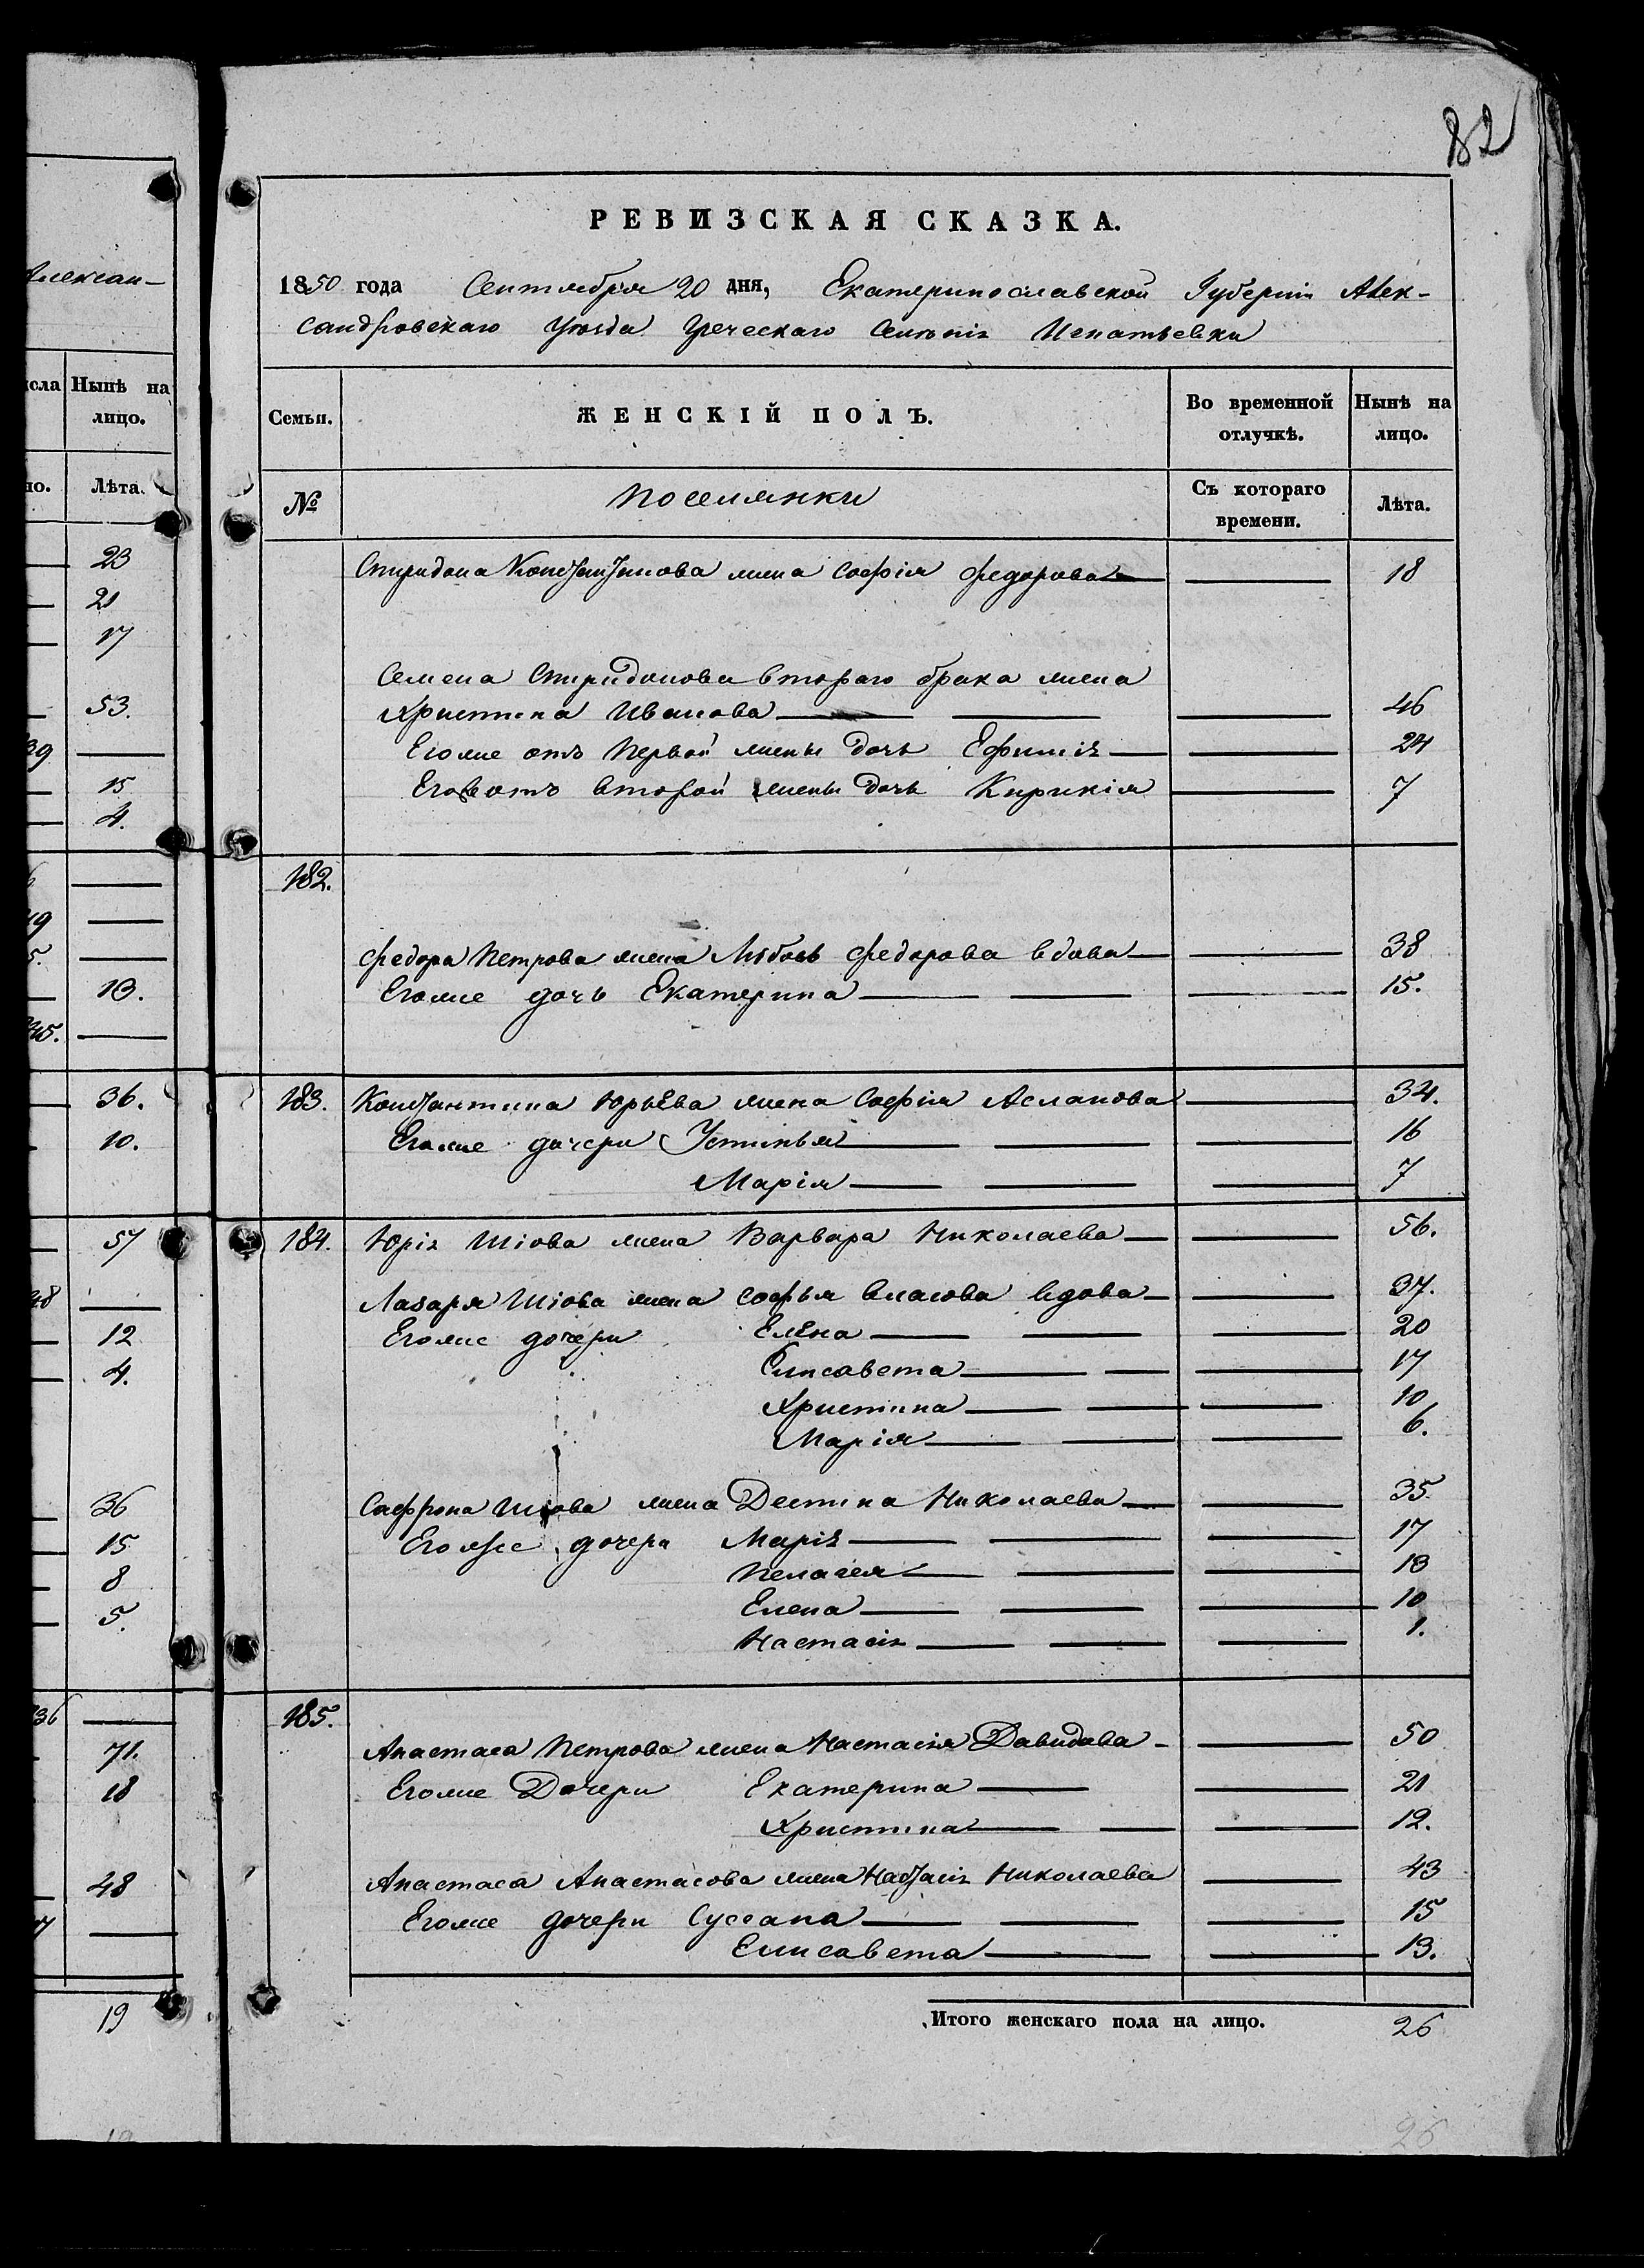 82
РЕВИЗСКАЯ СКАЗКА.
1850 года Сентября 20 дня, Екатеринославской Губерніи Алек-
сандровскаго Уѣзда Греческаго Селенія Игнатьевки
Семьи.
ЖЕНСКІЙ ПОЛЪ.
Во временной отлучкѣ.
Нынѣ на лицо.
№
Поселянки
Съ котораго времени.
Лѣта.
Спиридона Константинова жена Софія Федорова 18
Семена Спиридонова втораго брака жена
Христина Иванова 46
Егоже отъ первой жены дочь Ефимія 24
Егоже отъ второй жены дочь Кирикія 7
182.
Федора Петрова жена Любовь Федорова вдова 38
Егоже дочь Екатерина 15.
183. Константина Юрьева жена Софія Асланова 34.
Егоже дочери Устинья 16
Марія 7
184. Юрія Шіова жена Варвара Николаева 56.
Лазаря Шіова жена Софья Власова вдова 37.
Егоже дочери Елена 20
Елисавета 17
Христина 10
Марія 6.
Сафрона Шіова жена Деспина Николаева 35
Егоже дочери Марія 17
Пелагея 13
Елена 10
Настасія 1.
185.
Анастаса Петрова жена Настасія Давидова 50
Егоже Дочери Екатерина 21
Христина 12.
Анастаса Анастасова жена Настасія Николаева 43
Егоже дочери Суссана 15
Елисавета 13.
Итого женскаго пола на лицо. 26
26
Алексан-
Нынѣ на лицо.
Лѣта.
23
21
17
53.
39
15
4.
13.
36.
10.
57
48
12
4.
36
15
8
5.
36
71.
18
48
19